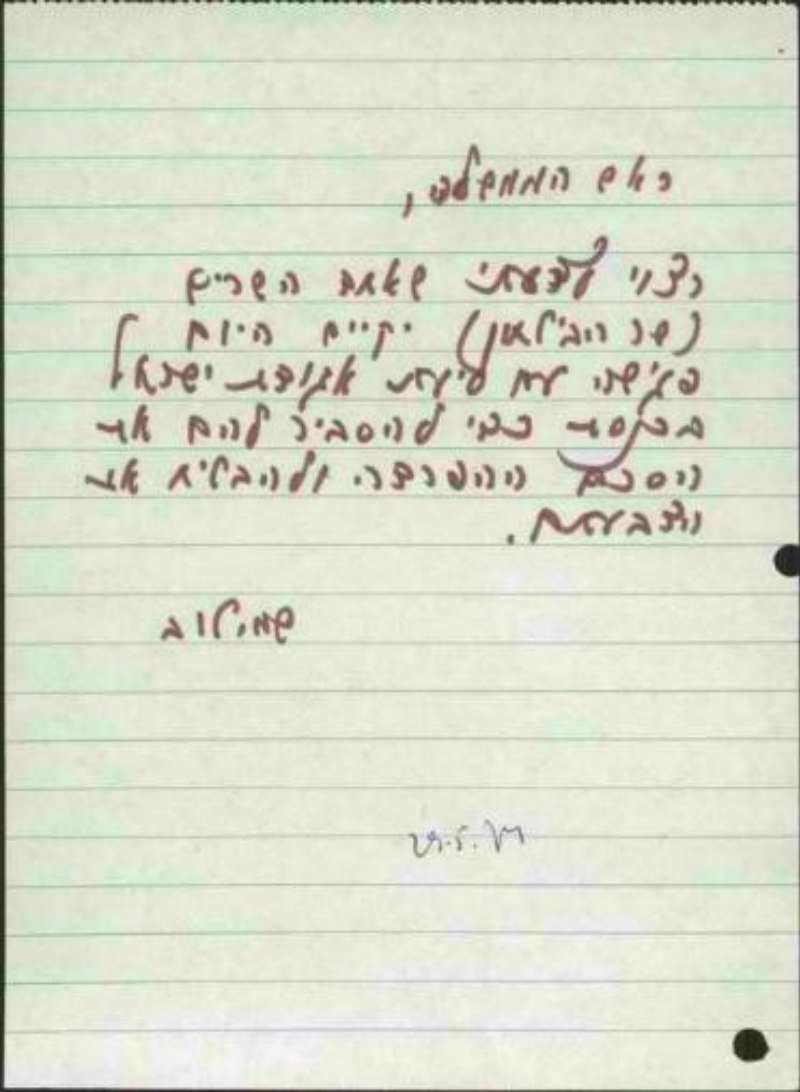 ראש הממשלה,
רצוי לדעתי שאחד השרים
(שר הבטחון) יקיים היום
פגישה עם סיעת אגודת ישראל
בכנסת כדי להסביר להם את
הסכם ההפרדה ולהבטיח את
הצבעתם.
שמטוב
29.5.74